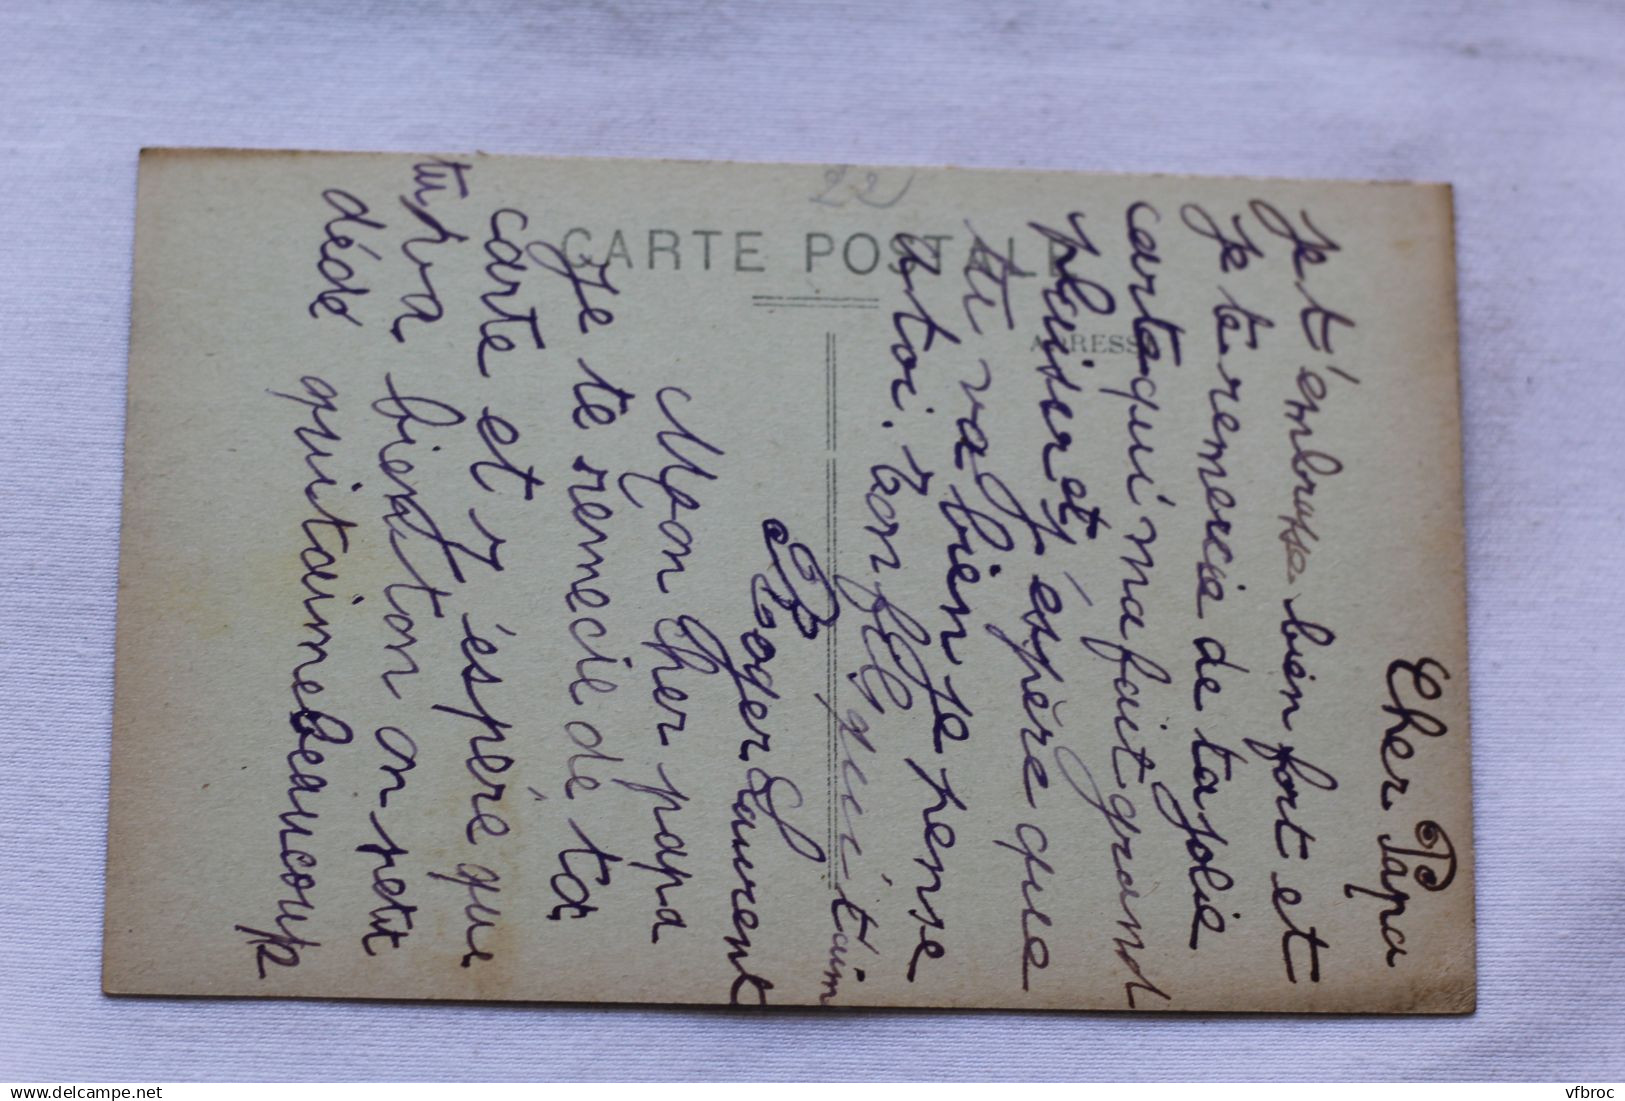 Cher Papa
je t'émbrasse bien fort et
je te remercie de ta jolie
carte qui ma fait grand
plaiser et j'éspère que
tu va bien je pense
a toi. Ton fils qui t'aim
Roger Laurent
Mon cher papa
je te remecie de ta
carte et j'éspère que
tu va bien ton on petit
dédé qui taime beaucoup
CARTE POSTALE
ADRESSE
22
vfbroc